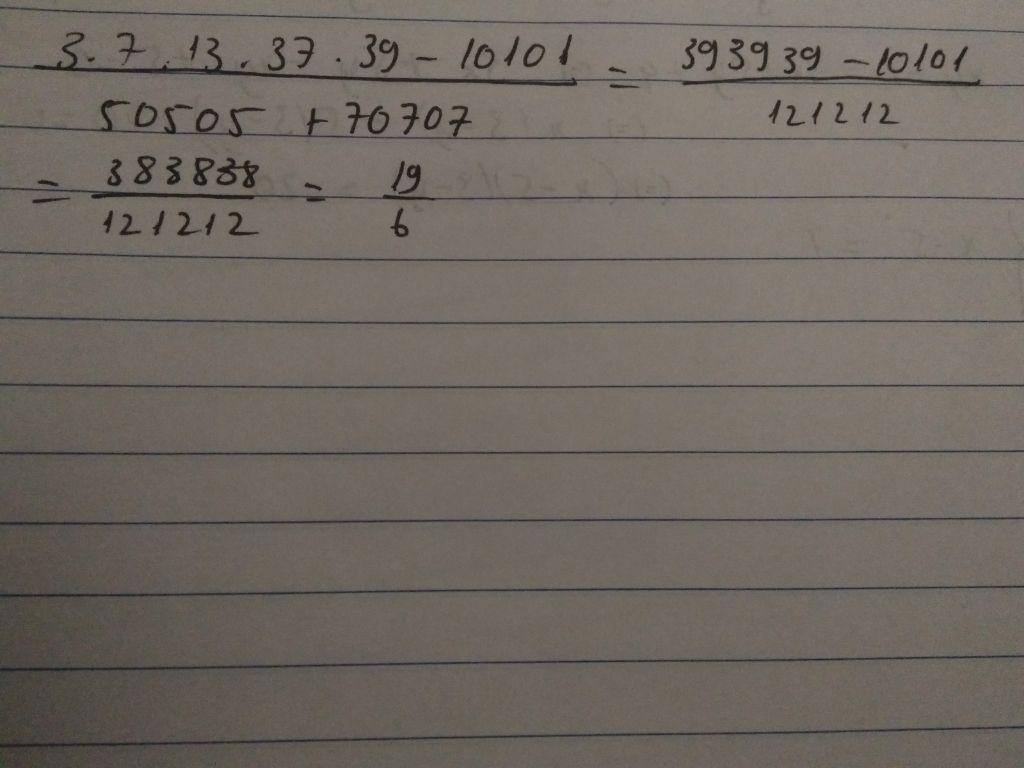 3.7.13.37.39-10101 / 50505+70707 = 393939-10101 / 121212
= 383838 / 121212 = 19 / 6